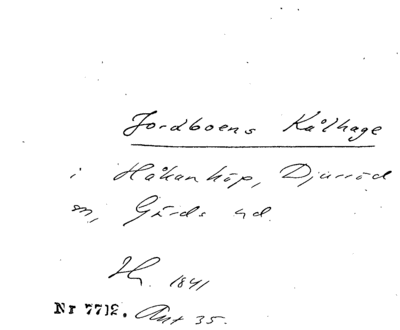 Jordboens Kålhage
i Håkanköp, Djurröd
sn, Gärds hd.
1841
Nr 7712. Ant 35.